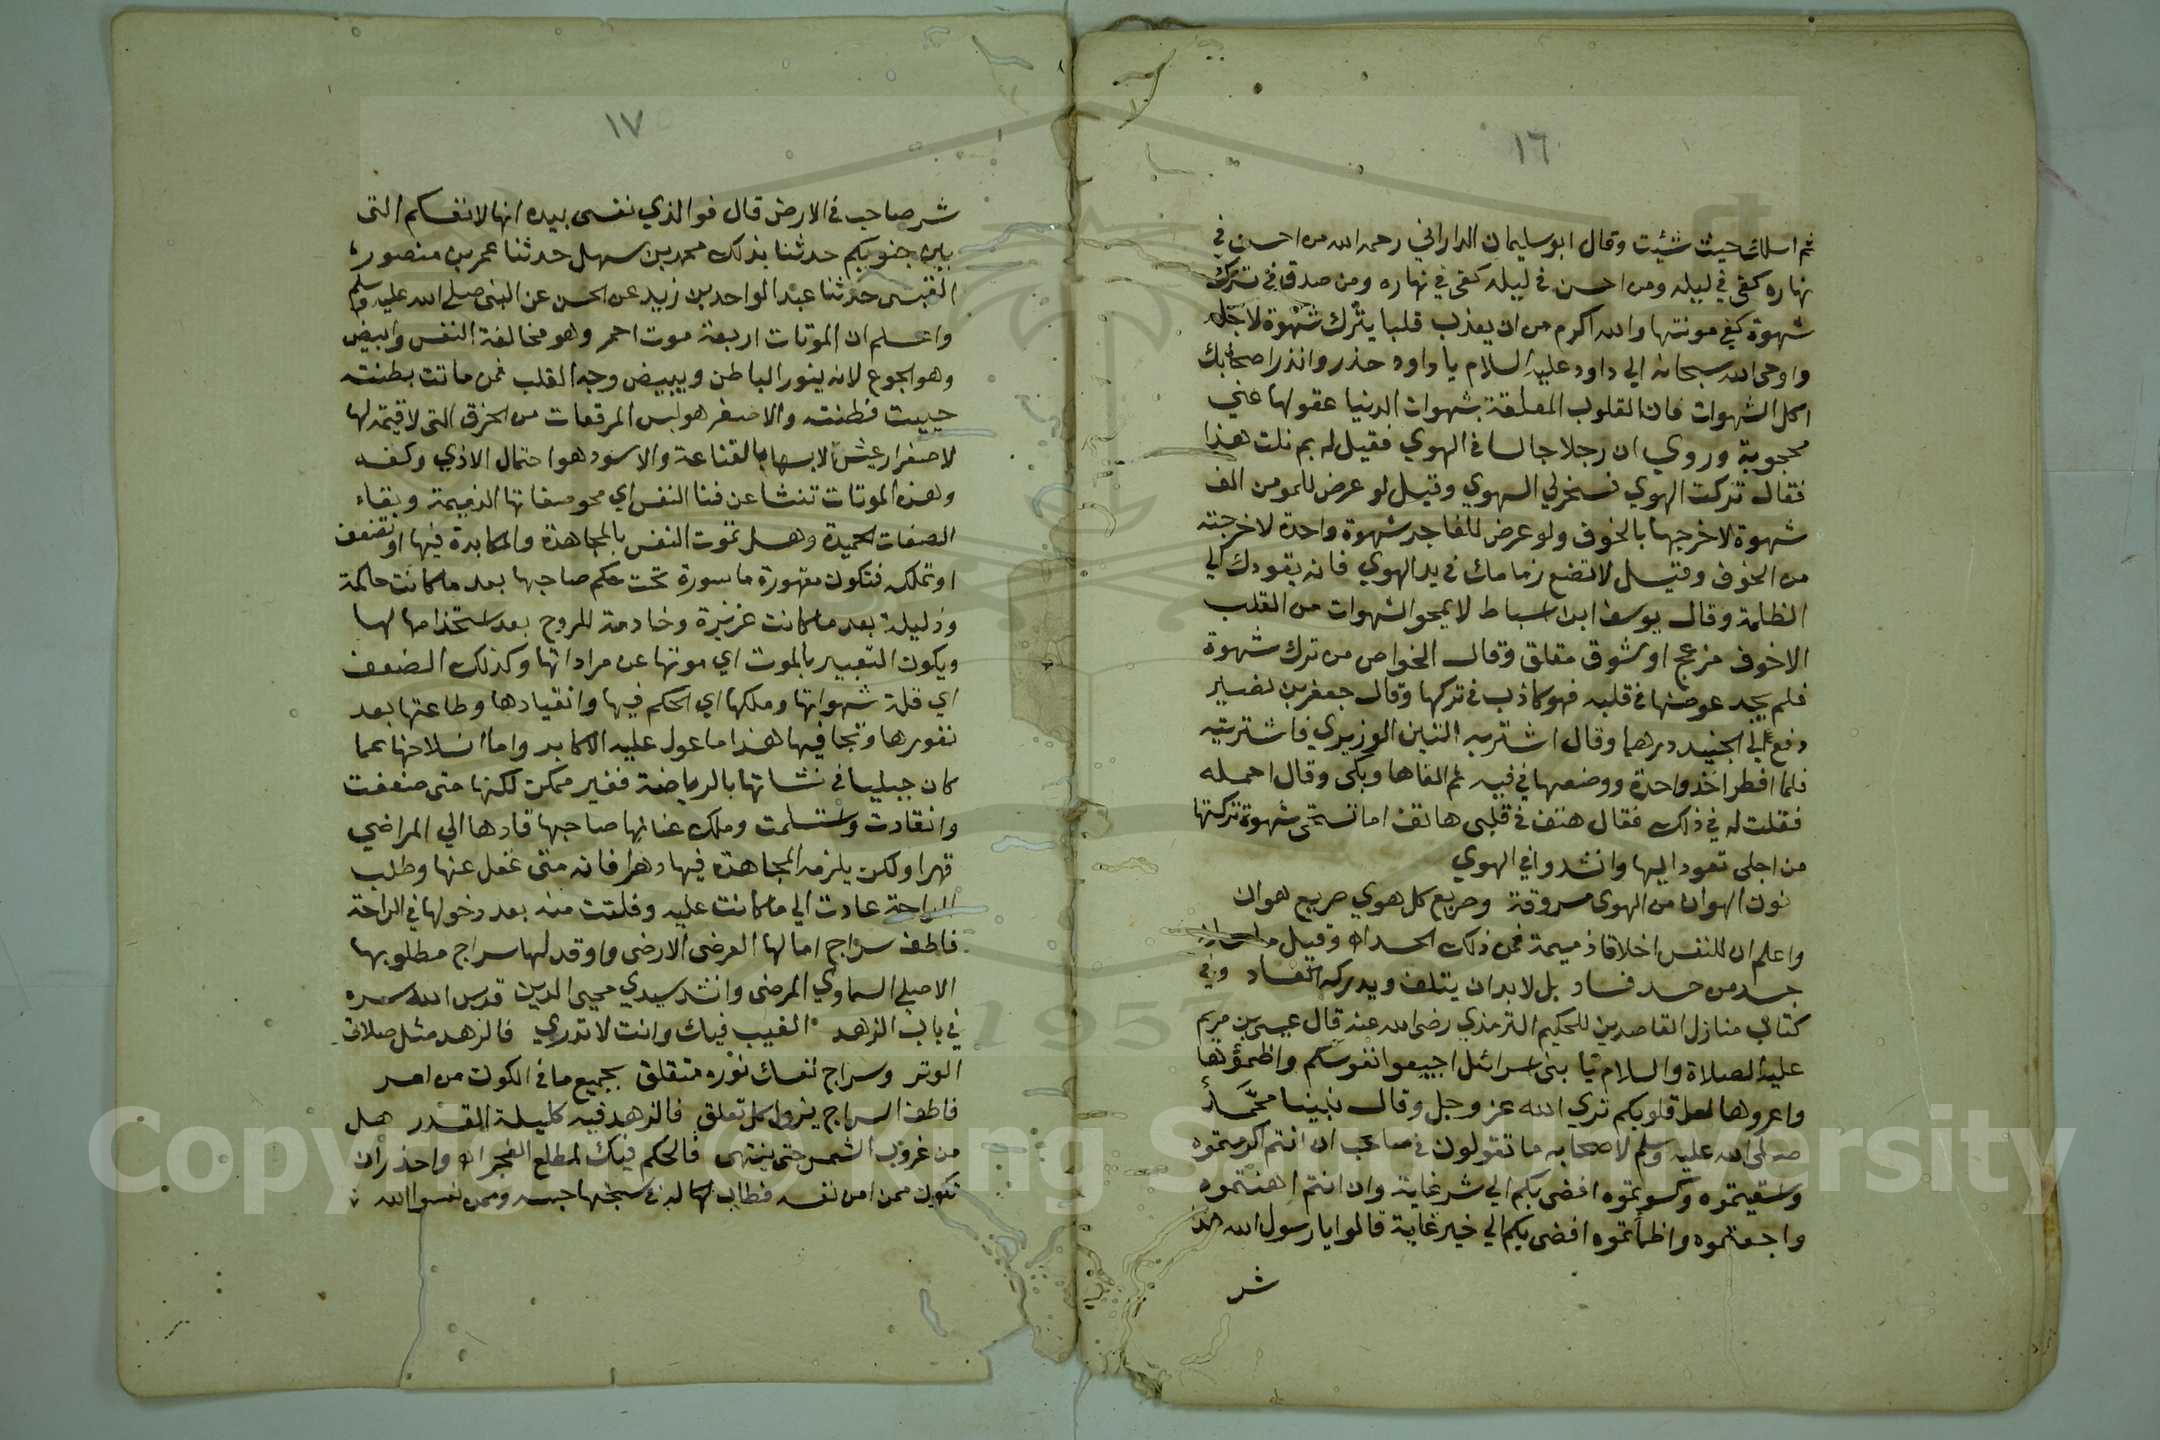 ١٦
ثم اسلك حيث شئت وقال ابو سليمان الداراني رحمه الله من احسن في
نهاره كفى في ليله ومن احسن في ليله كفى في نهاره ومن صدق في ترك
شهوة كفي مونتها والله اكرم من ان يعذب قلبا يترك شهوة لاجله
واوحى الله سبحانه الي داود عليه السلام يا داود حذر وانذر اصحابك
اكل الشهوات فان القلوب المعلقة بشهوات الدنيا عقولها عني
محجوبة وروي ان رجلا جالسا في الهوي فقيل له بم نلت هذا
فقال تركت الهوي فسخر لي الهوي وقيل لو عرض للمومن الف
شهوة لاخرجها بالخوف ولو عرض للفاجر شهوة واحدة لاخرجته
من الخوف وقيل لا تضع زمامك في يد الهوي فانه يقودك الي
الظلمة وقال يوسف ابن اسباط لا يمحو الشهوات من القلب
الا خوف مزعج او شوق مقلق وقال الخواص من ترك شهوة
فلم يجد عوضها في قلبه فهو كاذب في تركها وقال جعفر بن نصير
دفع الي الجنيد درهما وقال اشتر به التين الوزيري فاشتريته
فلما افطر اخذ واحدة ووضعها في فيه ثم القاها وبكى وقال احمله
فقلت له في ذلك فقال هتف في قلبي هاتف اما تستحي شهوة تركتها
من اجلى تعود اليها وانشدوا في الهوي
نون الهوان من الهوى مسروقة وصريع كل هوي صريع هوان
واعلم ان للنفس اخلاقا ذميمة فمن ذلك الحسد وقيل
جسد من حسد فساد بل لا بد ان يتلف ويدركه الفساد وفي
كتاب منازل القاصدين للحكيم الترمذي رضى الله عنه قال عيسى بن مريم
عليه الصلاة والسلام يا بنى اسرائل اجيعوا نفوسكم واظمؤها
واعروها لعل قلوبكم تري الله عز وجل وقال نبينا محمد
صلى الله عليه وسلم لاصحابه ما تقولون في صاحب ان انتم اكرمتموه
وسقيتموه وكسوتموه افضى بكم الي شر غاية وان انتم اهنتموه
واجعتموه واظمأتموه افضى بكم الي خير غاية قالوا يا رسول الله هذا
شر
١٧
شر صاحب في الارض قال فوالذي نفسى بيده انها لانفسكم التى
بين جنوبكم حدثنا بذلك محمد بن سهل حدثنا عمر بن منصور
القيسى حدثنا عبد الواحد بن زيد عن الحسن عن النبى صلى الله عليه وسلم
واعلم ان الموتات اربعة موت احمر وهو مخالفة النفس وابيض
وهو الجوع لانه ينور الباطن ويبيض وجه القلب فمن ماتت بطنته
حييت فطنته والاصفر هو لبس المرقعات من الخرق التى لا قيمة لها
لاصفرار عيش لابسها بالقناعة والاسود هو احتمال الاذي وكفه
وهذه الموتات تنشا عن فنا النفس اي محو صفاتها الذميمة وبقاء
الصفات الحميدة وهل تموت النفس بالمجاهدة والمكابدة فيها او تضعف
او تملك فتكون مقهورة ماسورة تحت حكم صاحبها بعد ما كانت حاكمة
وذليلة بعد ما كانت عزيزة وخادمة للروح بعد استخدامها لها
ويكون التعبير بالموت اي موتها عن مراداتها وكذلك الضعف
اي قلة شهواتها وملكها اي الحكم فيها وانقيادها وطاعتها بعد
نفورها وتجافيها هذا ما عول عليه الاكابر واما انسلاخها عما
كان جبليا في نشاتها بالرياضة فغير ممكن لكنها متى ضعفت
وانقادت واستسلمت وملك عنانها صاحبها قادها الي المراضي
قهرا ولكن يلزمه المجاهدة فيها دهرا فانه متى غفل عنها وطلب
الراحة عادت الي ما كانت عليه وفلتت منه بعد دخولها في الراحة
فاطف سراج امالها العرضى الارضى واوقد لها سراج مطلوبها
الاصلي السماوي المرضى وانشد سيدي محيى الدين قدس الله سره
في باب الزهد الغيب فيك وانت لا تدري فالزهد مثل صلاة
الوتر وسراج نفسك نوره متعلق بجميع ما في الكون من امر
فاطف السراج يزول كل تعلق فالزهد فيه كليلة القدر هل
من غروب الشمس حتى ينتهى فالحكم فيك لمطلع الفجر اه واحذر ان
تكون ممن امن نفسه فطاب لها في سجنها حبسه وممن نسوا الله
Copyright © King Saud University
1957